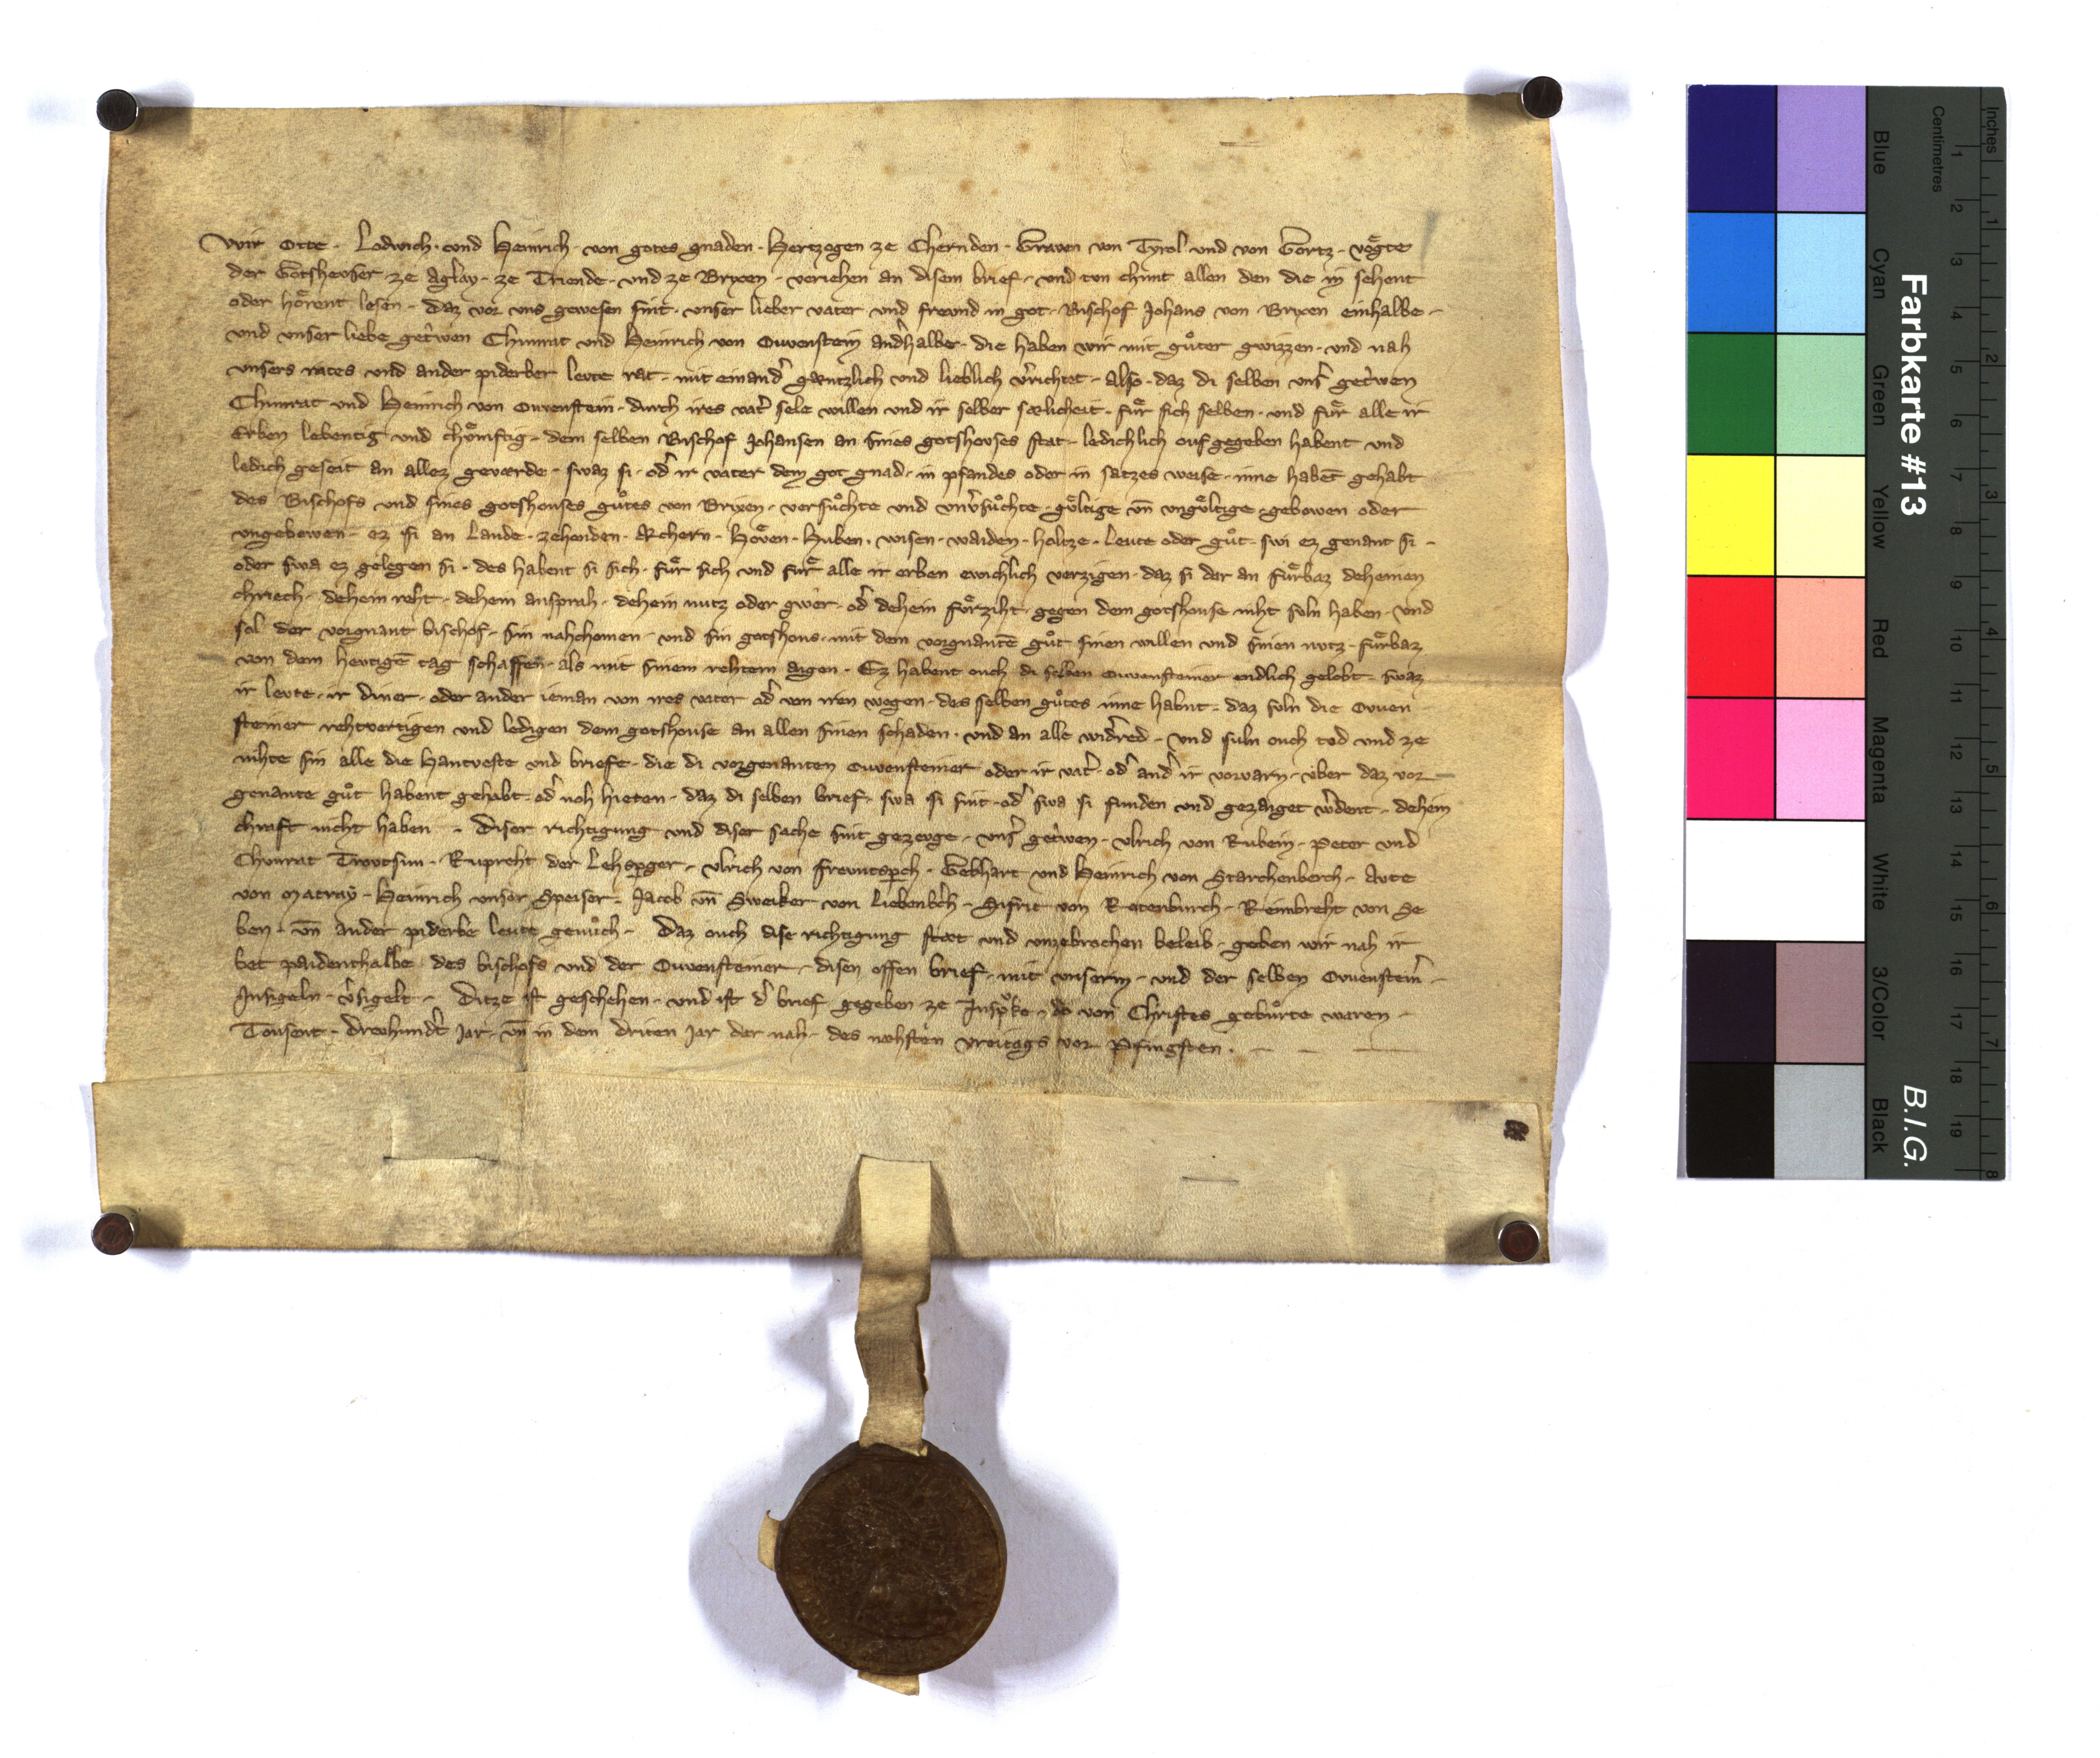 Wir Otte · Lodwich · vnd Heinrich · von gotes gnaden · Hertzogen ze Chernden · Graven von Tyrol · vnd von Gortz · voͤgte
der Gotshevser · ze Aglay · ze Triende · vnd ze Brixen · veriehen an disem brief · vnd tvn chunt allen den die in sehent
oder hoͤrent lesen · daz vor vns gewesen sint · vnser lieber vater vnd frevnd in got · Bischof Johans von Brixen einhalbe ·
vnd vnser liebe get͛wen Chunrat vnd Heinrich von Ouvenstein and͛halbe · die haben wir mit guͦter gwizzen · vnd nah
vnsers rates vnd ander piderber levte rat · mit einand͛ gæntzlich vnd lieblich v͛richtet · also · daz di selben vns͛ get͛wen
Chunrat vnd Heinrich von Ouvenstein · durch ires vat͛ sele willen vnd ir selber sælicheit · fuͤr sich selben · vnd fuͤr alle ir
Erben lebentig vnd chuͤmftig · dem selben Bischof Johansen an sines gotshovses stat · ledichlich ouf gegeben habent vnd
ledich geseit an allez geværde · swaz si · od͛ ir vater dem got gnad · in pfandes oder in satzes weise · inne habēt gehabt
des Bischofs vnd sines gotshouses guͦtes von Brixen · versuͦchte vnd vnv͛suͦchte · guͤltige vn̄ vnguͤltige · gebowen oder
vngebowen · ez si an Lande · zehenden · Æchern · Hoͤven · Huben · wisen · waiden · holtze · Leute oder guͦt · swi ez genant si ·
oder swa ez gelegen si · des habent si sich · fuͤr sich vnd fuͤr alle ir erben ewichlich verzigen · daz si dar an fuͤrbaz deheinen
chriech · dehein reht · dehein ansprah · dehein nutz oder gwer · od͛ dehein fuͤrziht · gegen dem gotshouse niht suln haben · vnd
sol der vorgnant bischof · sin nahchomen · vnd sin gotshous · mit dem vorgnantē guͦt sinen willen vnd sinen nvtz · fuͤrbaz
von dem hevtigē tag schaffen · als mit sinem rehtem aigen · Ez habent ouch di selben Ouvensteiner endlich gelobt · swaz
ir levte · ir diner · oder ander ieman von ires vater od͛ von iren wegen · des selben guͦtes inne habnt · daz suln die Ouven
steiner rehtvertigen vnd ledigen dem gotshouse an allen sinen schaden · vnd an alle wid͛red · vnd suln ouch tod vnd ze
nihte sin alle die Hantveste vnd briefe · die di vorgenanten Ouvensteiner oder ir vat͛ · od͛ and͛ ir vorvarn · vber daz vor
genante guͦt habent gehabt · od͛ noh hieten · daz di selben brief · swa si sint · od͛ swa si funden vnd gezaiget w͛dent · dehein
chraft nicht haben · Diser richtigung vnd diser sache sint gezevge · vns͛ get͛wen · Vlrich von Rubein · Peter vnd
Chunrat Trovtsun · Rupreht der Lehsperger · Vlrich von Frevntsperch · Gebhart vnd Heinrich von Starchenberch · Avte
von Matray · Heinrich vnser Speiser · Jacob vn̄ Sweiker von Liebenb͛ch · Sifrit von Rotenburch · Reimbreht von Se
ben · vn̄ ander piderbe leute genuͦch · Daz ouch dise richtigung stæt vnd vnzebrochen beleib · geben wir nah ir
bet paidenthalbe des bischofs vnd der Ouvensteiner · disen offen brief · mit vnserm · vnd der selben Ouenstein͛ ·
Insigeln · v͛sigelt · Ditze ist geschehen · vnd ist d͛ brief gegeben ze Inspͦke · do von Christes gebuͤrte waren ·
Tousent · drevhund͛t jar · vn̄ in dem driten jar dar nah · des næhsten vreitags vor Pfingsten ·
Farbkarte #13
B.I.G.
Blue Cyan Green Yellow Red Magenta White 3/Color Black
Centimetres 1 2 3 4 5 6 7 8 9 10 11 12 13 14 15 16 17 18 19
Inches 1 2 3 4 5 6 7 8